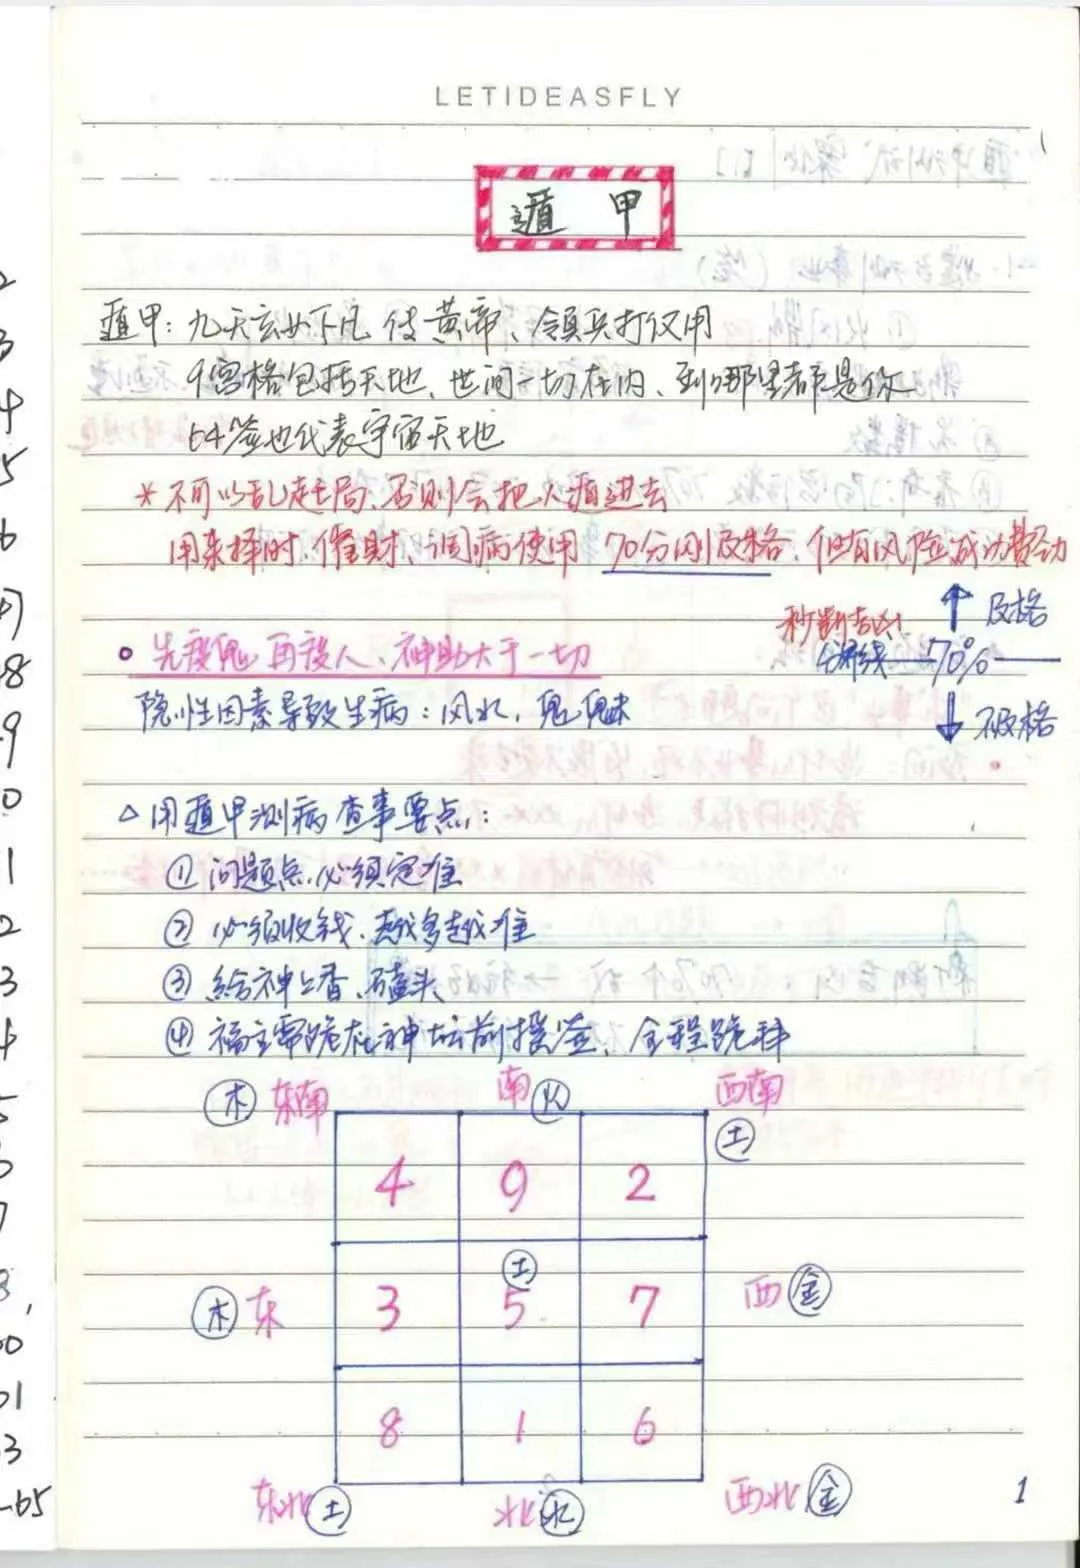 LETIDEASFLY
遁甲
遁甲：九天玄女下凡传黄帝、领兵打仗用
9宫格包括天地、世间一切在内、到哪里都是你
64签也代表宇宙天地
*不可以乱起局、否则会把人遁进去
用来择时、催财、调病使用 70分刚及格、但有风险成功费劲
秒断吉凶
↑及格
分界线 70%
↓不及格
•先渡鬼 再渡人、神助大于一切
隐性因素导致生病：风水，鬼魅
△用遁甲测病查事要点：
①问题点必须定准
②必须收钱、越多越准
③给神上香、磕头
④福主需跪在神坛前摇签、全程跪拜
木 东南 南 火 西南 土
4 9 2
土
木 东 3 5 7 西 金
8 1 6
东北 土 北 水 西北 金
1